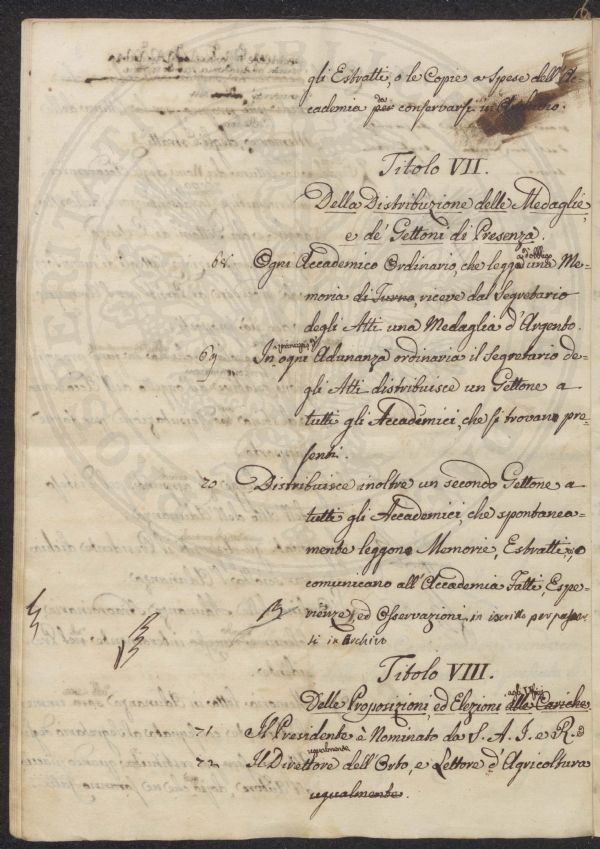 gli Estratti, o le Copie a Spese dell'Ac=
cademia per da conservarsi in Archivio.
Titolo VII.
Della Distribuzione delle Medaglie,
e de' Gettoni di Presenza.
68 Ogni Accademico Ordinario, che legga una Me=
d'obbligo
moria di Turno, riceve dal Segretario
degli Atti una Medaglia d'Argento.
principio di
69 In ogni Adunanza ordinaria il Segretario de=
gli Atti distribuisce un Gettone a
tutti gli Accademici, che si trovano pre=
senti.
70 Distribuisce inoltre un secondo Gettone a
tutti gli Accademici, che spontanea=
mente leggono Memorie, Estratti, o
comunicano all'Accademia Fatti, Espe=
rienze, ed Osservazioni in iscritto per passar
si in Archivio
Titolo VIII.
Delle Proposizioni, ed Elezioni alle Cariche
71 Il Presidente è Nominato da S. A. I. e R.
ugualmente
72 Il Direttore dell'Orto, e Lettore d'Agricoltura
ugualmente.